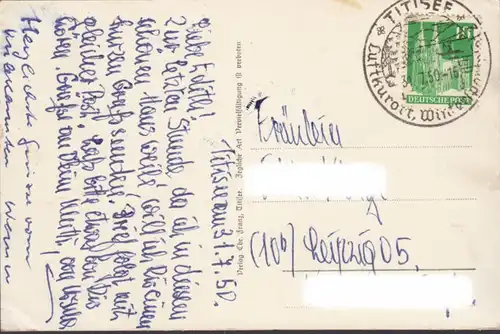 Titisee, am 31.7.50.
Liebe Edith!
Zur letzten Stunde, da ich in diesem
schönen Haus weile, will ich Dir einen
kurzen Gruß senden. Brief folgt mit
gleicher Post. Laß bitte etwas von Dir
hören. Grüße an Deine Mutti, von
Herzliche Grüße von
Verlag Chr. Franz, Titisee. Jegliche Art Vervielfältigung ist verboten
TITISEE
Luftkurort, Wintersport
.7.50-16
DEUTSCHE POST
Fräulein
(10b) Leipzig O5.